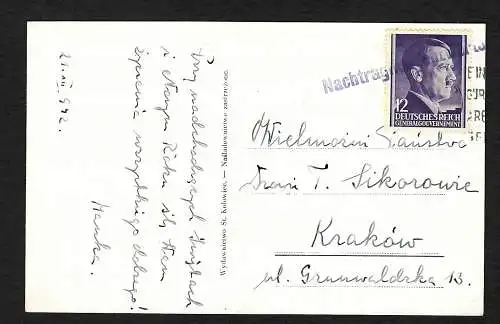 21.XII.942.
Przy nadchodzących Świętach
i Nowym Roku ślę Wam
życzenia wszystkiego dobrego!
Wydawnictwo St. Kolowiec. — Naśladownictwo zastrzeżone.
Nachträg
12
DEUTSCHES REICH
GENERALGOUVERNEMENT
Wielmożni Państwo
T. Sikorowie
Kraków
ul. Grunwaldzka 13.